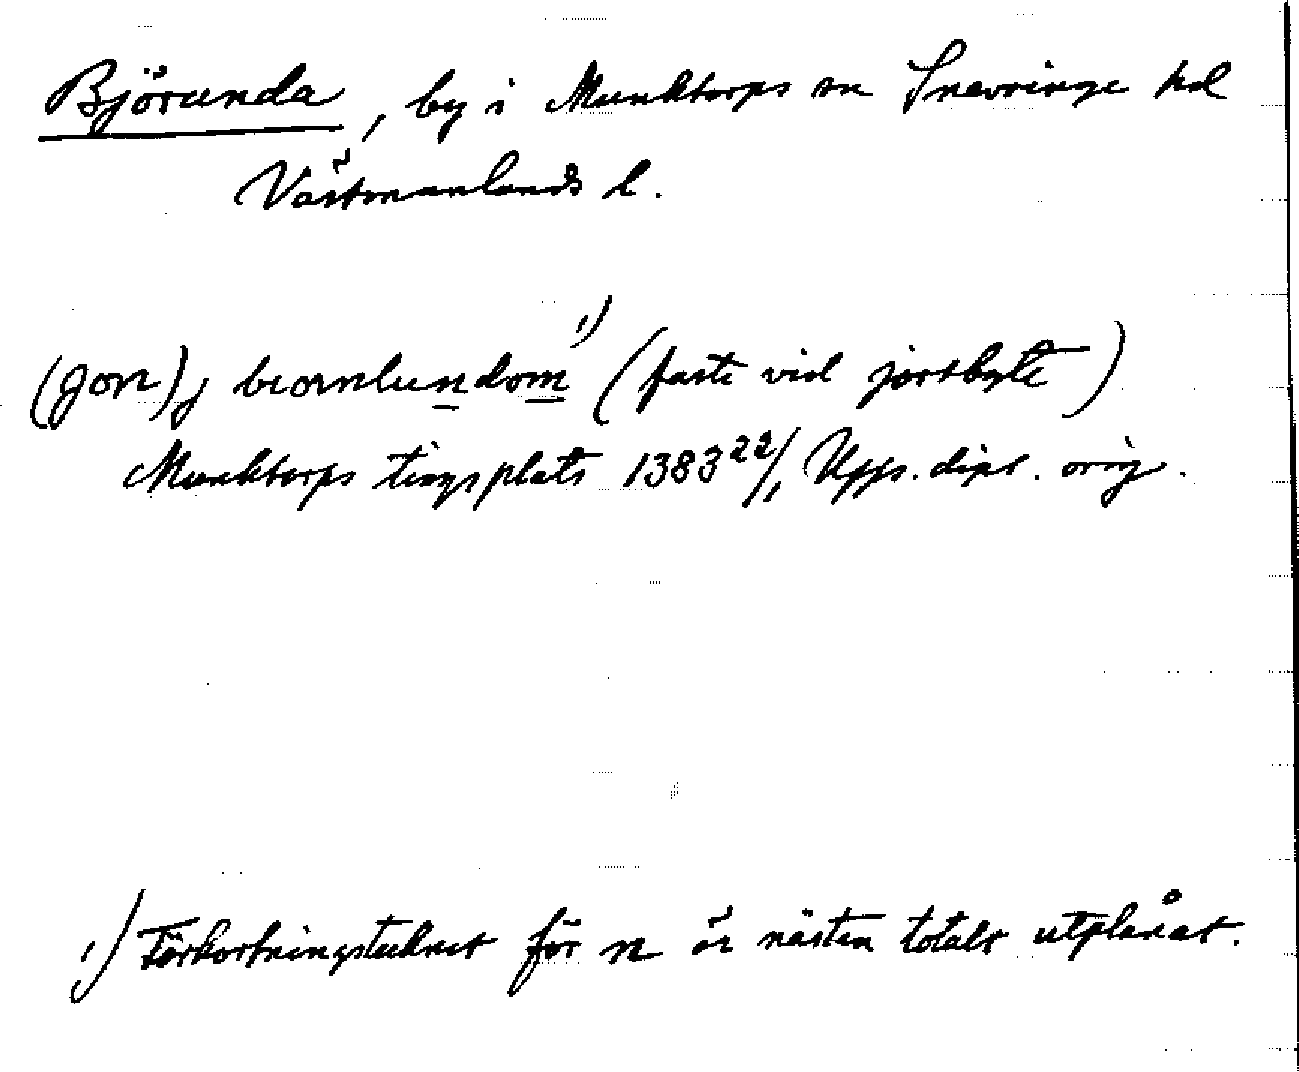 Björunda, by i Munktorps sn Snevringe hd
Västmanlands l.
(jon) j biornlundom 1) (faste vid jordbyte)
Munktorps tingsplats 1383 22/1 Upps. dipl. orig.
1) Förkortningstecknet för n är nästan totalt utplånat.